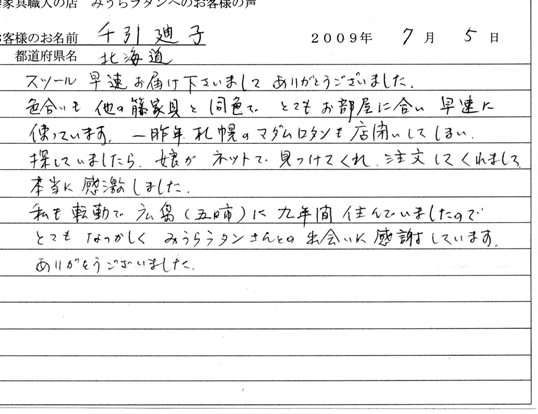 家具職人の店 みうらラタンへのお客様の声
お客様のお名前 千引 廸子 2009年 7月 5日
都道府県名 北海道
スツール 早速お届け下さいまして ありがとうございました。
色合いも 他の籐家具と同色で、とてもお部屋に合い 早速に
使っています。一昨年 札幌のマダムロタンも 店閉いしてしまい
探していましたら、娘が ネットで見つけてくれ、注文してくれまして
本当に感激しました。
私も 転勤で 広島(五日市)に 九年間 住んでいましたので
とても なつかしく みうらラタンさんとの 出会いに感謝しています。
ありがとうございました。